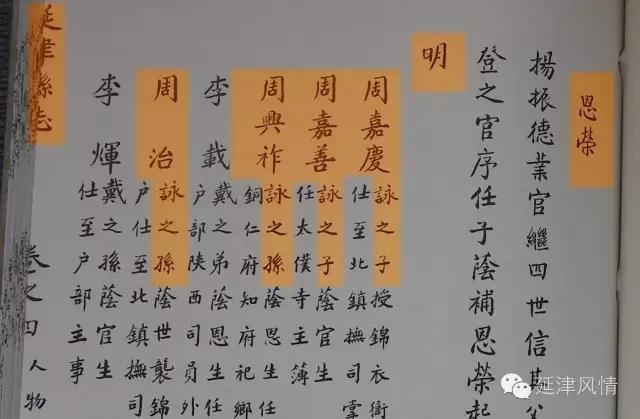 恩榮
揚振德業官繼四世信其公
登之官序任子蔭補恩榮起
明
周嘉慶 詠之子授錦衣衛
仕至北鎮撫司掌
周嘉善 詠之子蔭官生
任太僕寺主簿
周興祚 詠之孫蔭恩生任
銅仁府知府祀鄉
李載 戴之弟蔭恩生任
户部陕西司員外
周治 詠之孫蔭世襲錦
户仕至北鎮撫司
李煇 戴之孫蔭官生
仕至户部主事
延津縣志 卷之四 人物
延津风情